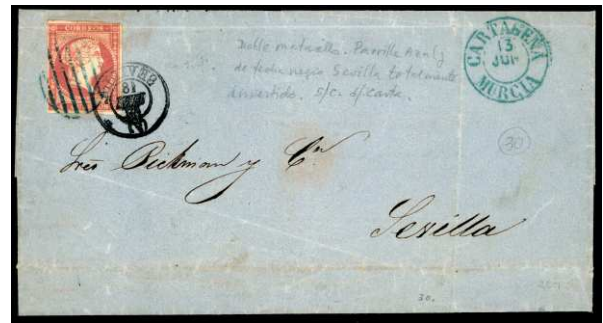 CORREOS
doble matasellos. Parrilla Azul y
de fecha negro Sevilla totalmente
invertido. s/c. s/carta.
CARTAGENA
13
JUN
MURCIA
30
Sres Pickman y Cª
Sevilla
30.